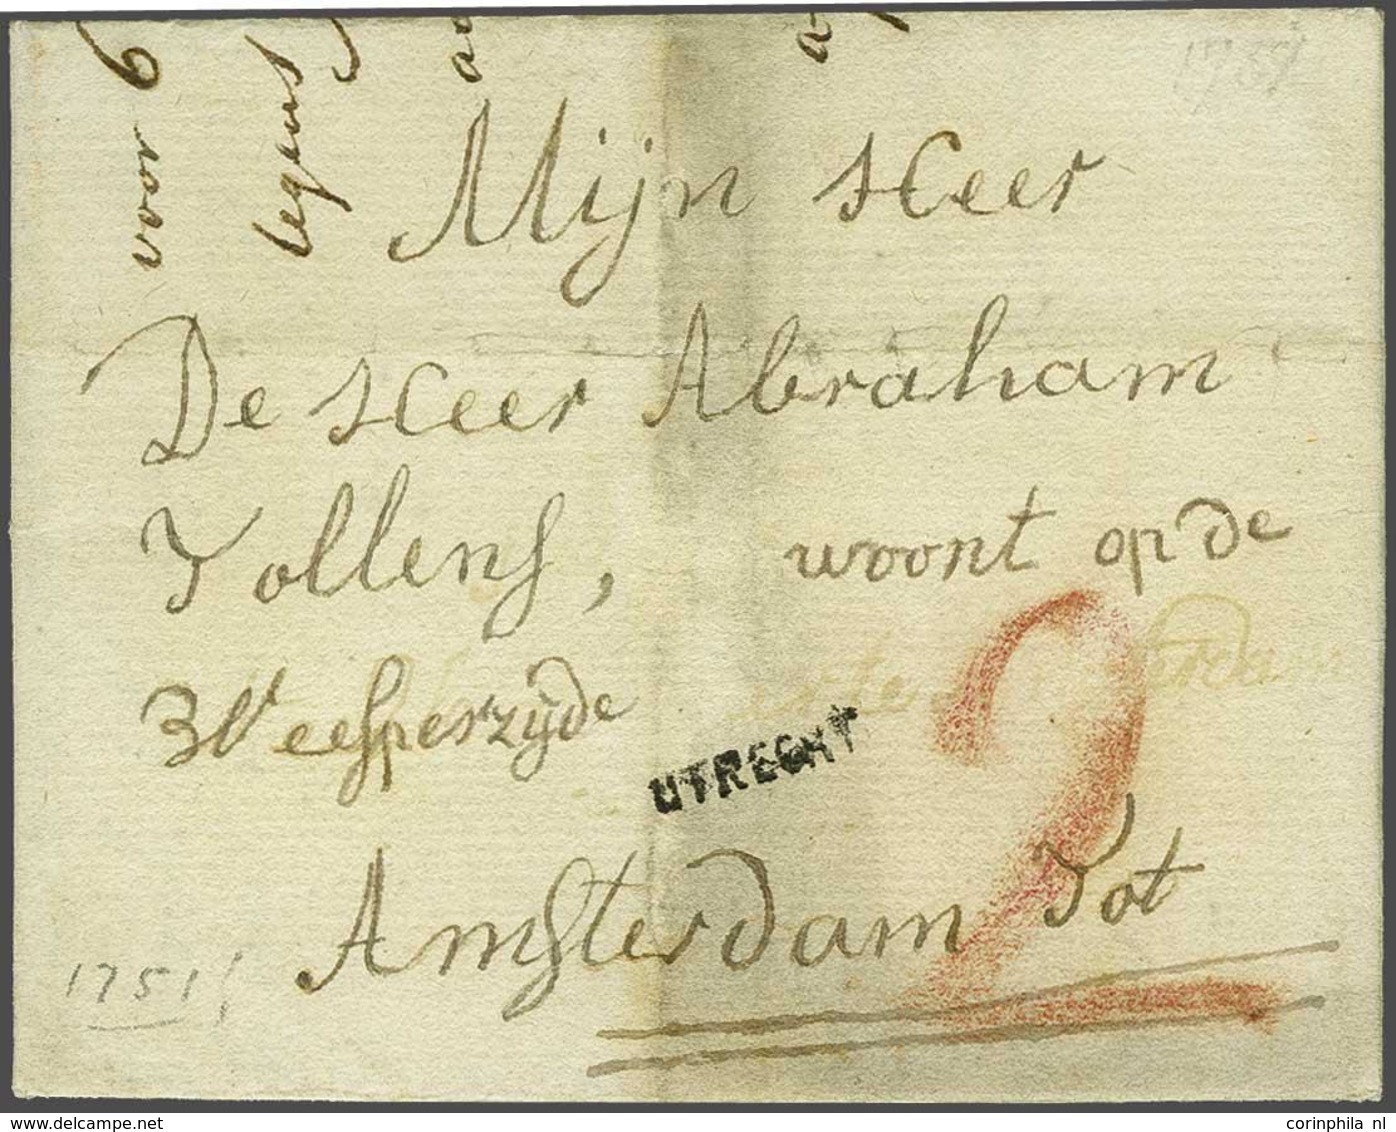 voor 6
tegens
Mijn Heer
De Heer Abraham
Tollens, woont op de
Weesperzijde
UTRECHT
2
Amsterdam Tot
1751
corinphila nl